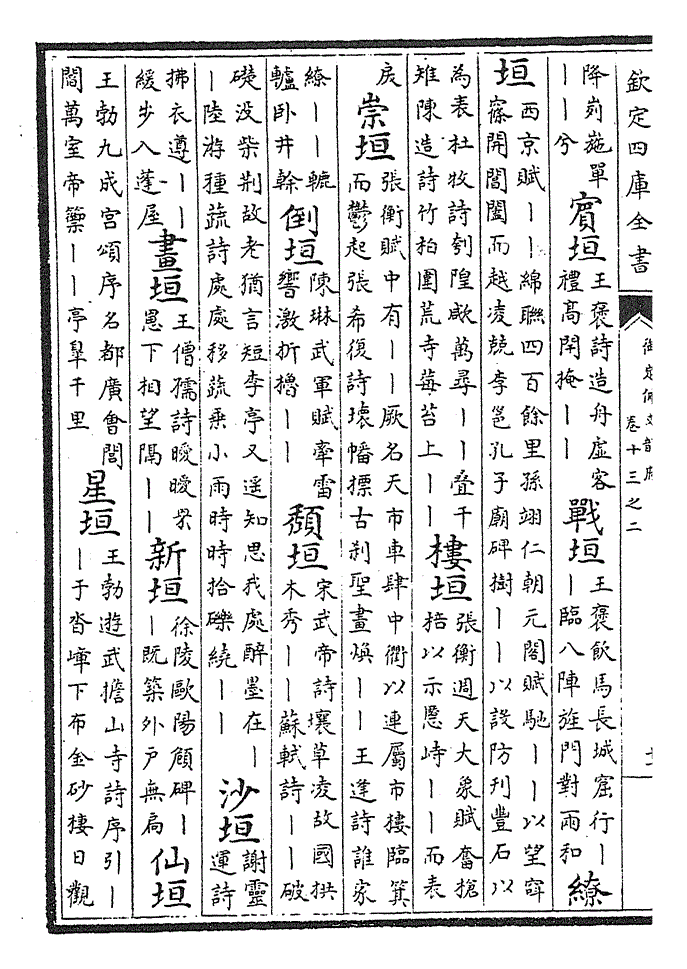 欽定四庫全書
御定佩文韻府
卷十三之二
十一
降峛崺單
——兮
賓垣
王褒詩造舟虛客
禮高閈掩——
戰垣
王褒飲馬長城窟行—
—臨八陣旌門對兩和
繚
垣
西京賦——綿聯四百餘里孫翊仁朝元閣賦馳——以望窅
窱開閶闔而越凌兢李邕孔子廟碑樹——以設防刊豐石以
為表杜牧詩刳隍歘萬尋——疊千
雉陳造詩竹柏圍荒寺莓苔上——
樓垣
張衡週天大象賦奮搶
棓以示慝峙——而表
戾
崇垣
張衡賦中有——厥名天市車肆中衢以連屬市樓臨箕
而鬱起張希復詩壞幡摽古刹聖畫煥——王逢詩誰家
繚——轆
轤卧井榦
倒垣
陳琳武軍賦牽雷
響激折櫓——
頹垣
宋武帝詩壤草凌故國拱
木秀——蘇軾詩——破
礎没柴荆故老猶言短李亭又遥知思我處醉墨在—
—陸游種蔬詩處處移蔬乘小雨時時拾礫繞——
沙垣
謝靈
運詩
拂衣遵——
緩步入蓬屋
畫垣
王僧孺詩曖曖罘
罳下相望隔——
新垣
徐陵歐陽頠碑—
—既築外户無扃
仙垣
王勃九成宫頌序名都廣會閭
閻萬室帝籞——亭臯千里
星垣
王勃遊武擔山寺詩序引—
—于沓嶂下布金砂棲日觀